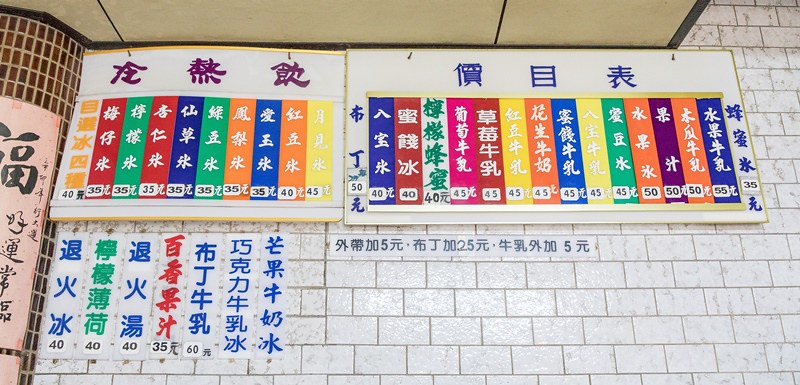 冷熱飲
自選冰四種 40元
梅仔冰 35元
檸檬冰 35元
杏仁冰 35元
仙草冰 35元
綠豆冰 35元
鳳梨冰 35元
愛玉冰 35元
紅豆冰 40元
月見冰 45元
價目表
布丁 50元
八宝冰 40元
蜜餞冰 40
檸檬蜂蜜 40元
葡萄牛乳 45
草莓牛乳 45
紅豆牛乳 45
花生牛奶 45
蜜餞牛乳 45元
八宝牛乳 45元
愛豆冰 45元
水果冰 50
果汁 50元
木瓜牛乳 50元
水果牛乳 55元
蜂蜜冰 35元
外帶加5元·布丁加25元·牛乳外加 5 元
退火冰 40
檸檬薄荷 40
退火湯 40
百香果汁 35元
布丁牛乳 60元
巧克力牛乳冰
芒果牛奶冰
福
好運常臨